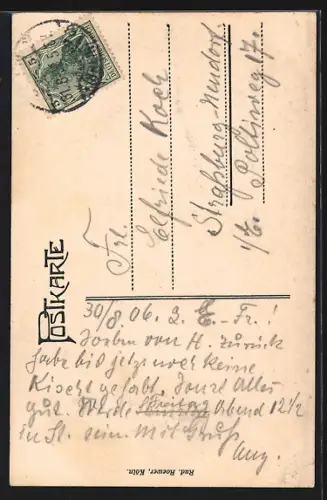 POSTKARTE
Frl.
Elfriede Koch
Straßburg-Neudorf
i/E. Polligweg 17.
30/8 06. L. E. - Fr.!
Soeben von H. zurück
habe bis jetzt noch keine
gehabt. Sonst Alles
gut. Werde Freitag Abend 12 1/2
in St. sein. Mit Gruß
Aug.
Rud. Roewer, Köln.